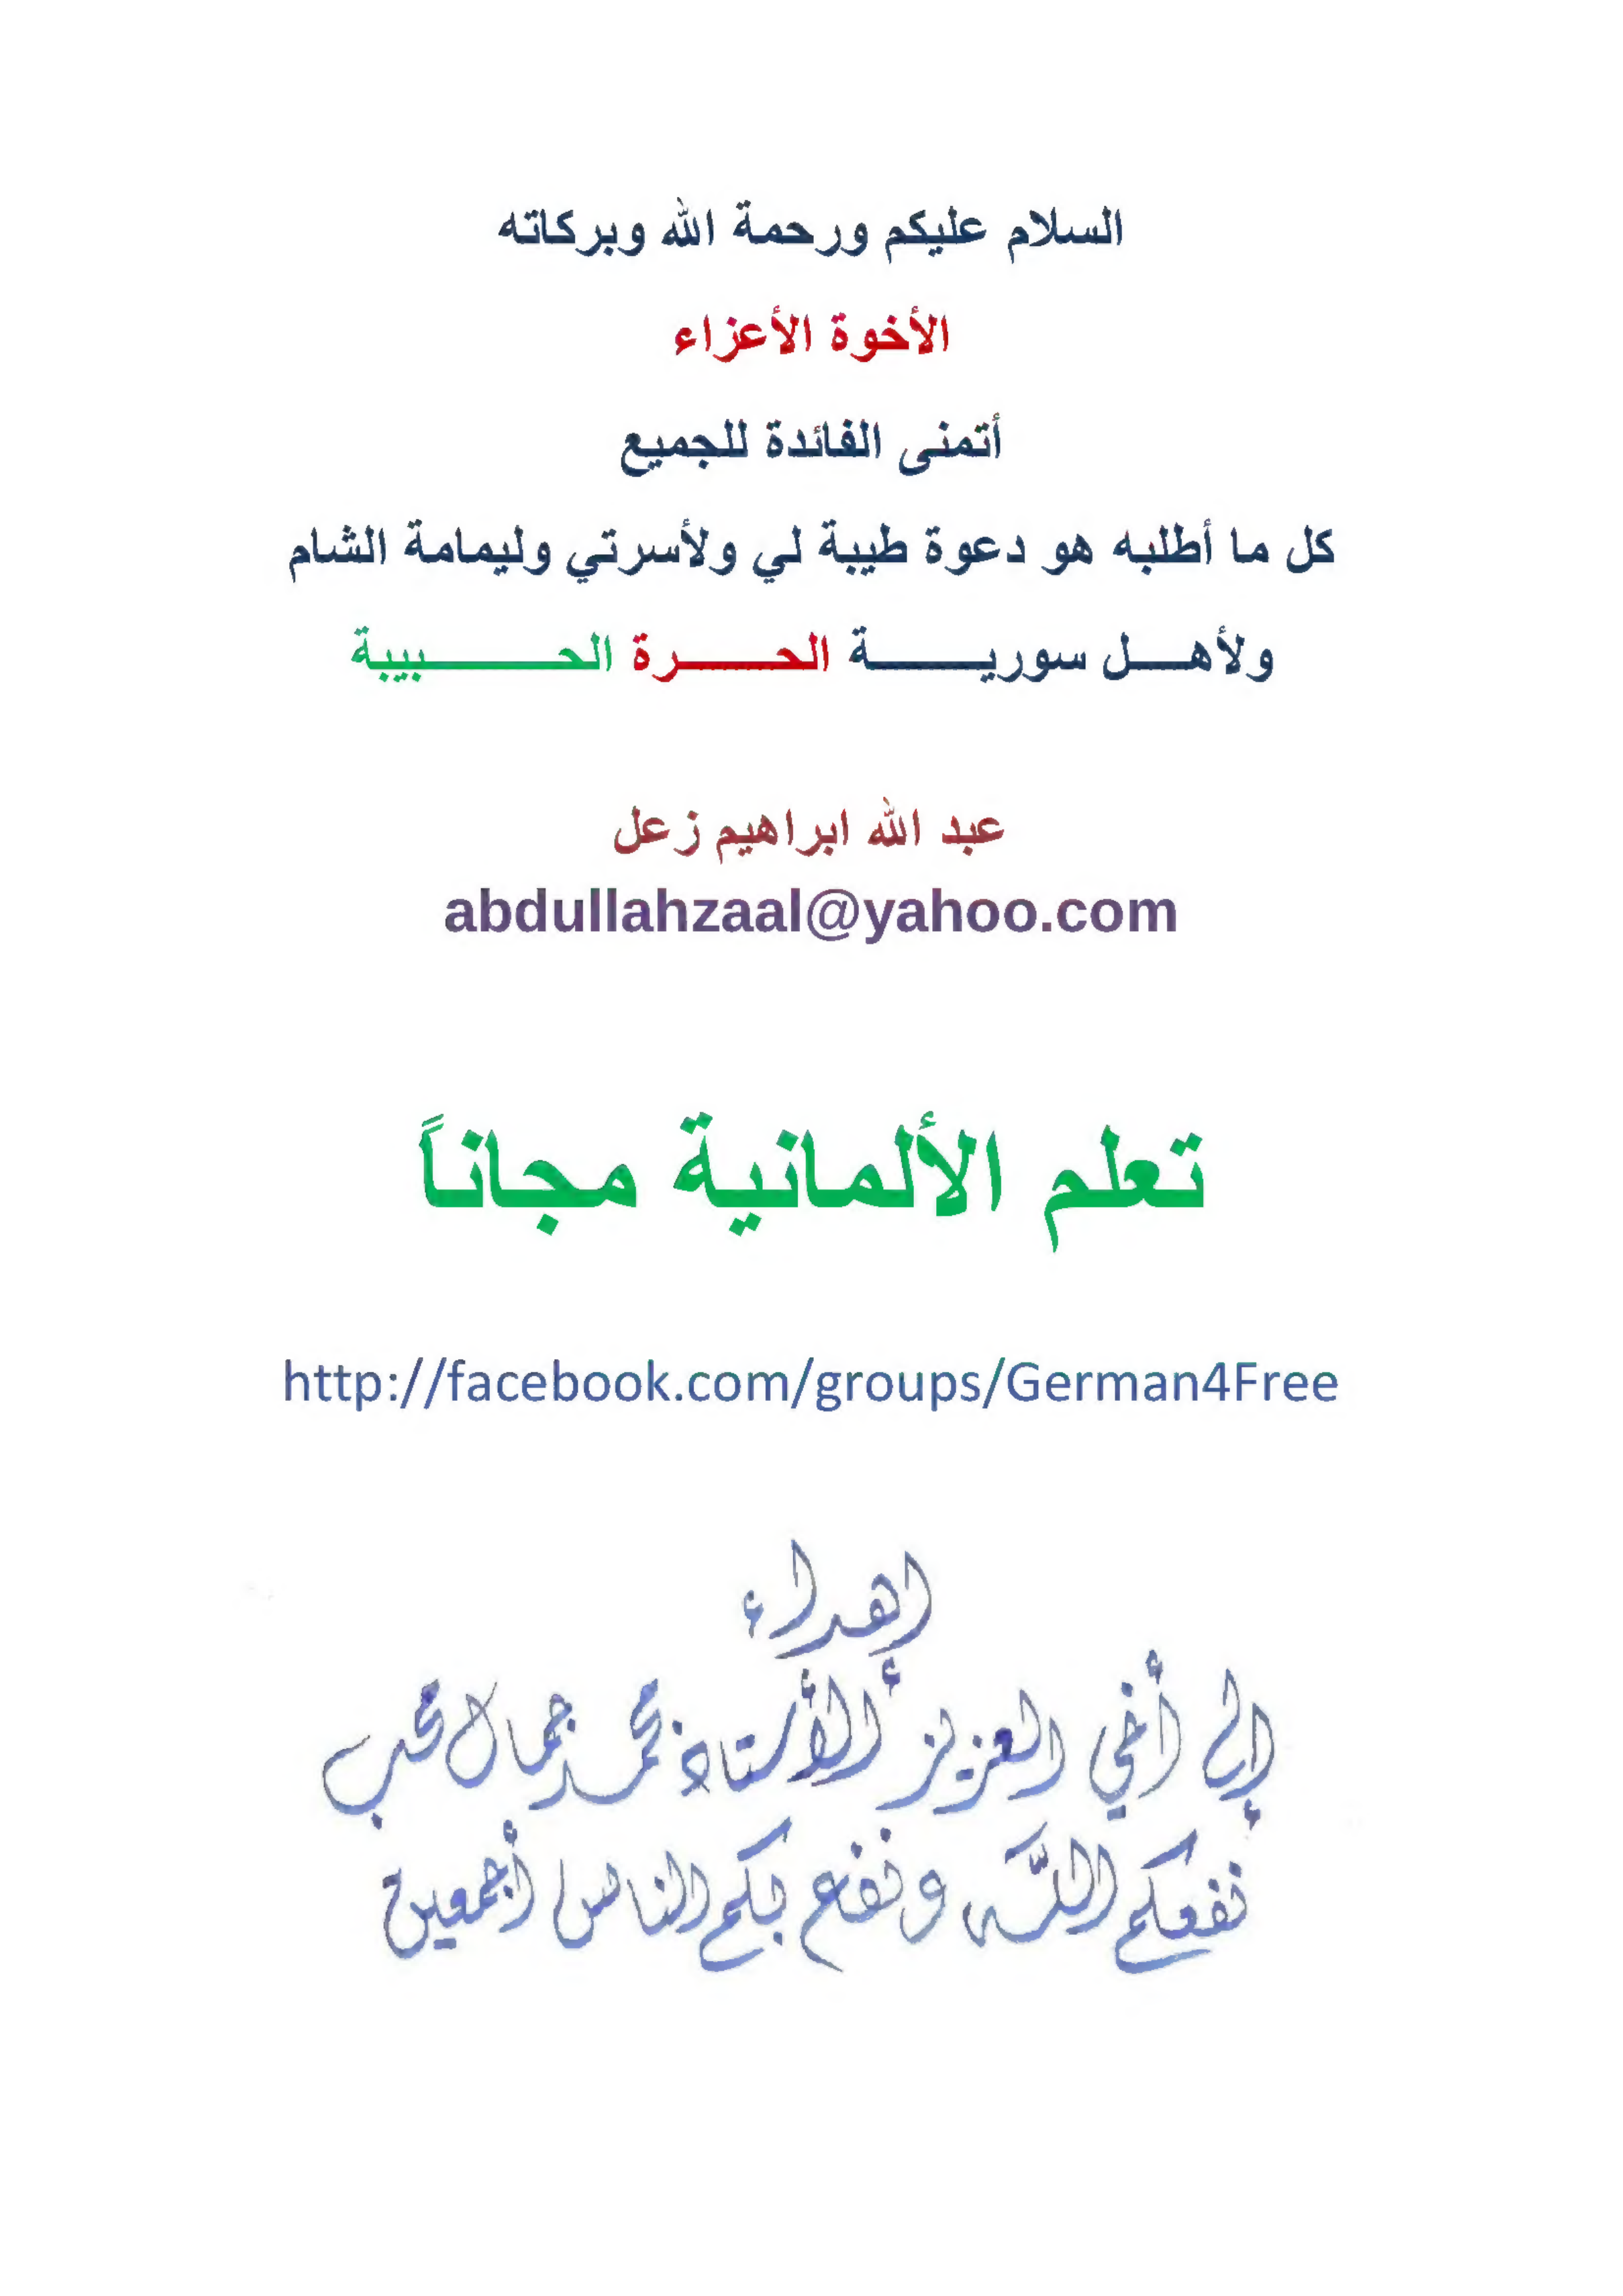 السلام عليكم ورحمة الله وبركاته
الأخوة الأعزاء
أتمنى الفائدة للجميع
كل ما أطلبه هو دعوة طيبة لي ولأسرتي وليمامة الشام
ولأهـــل سوريــــــــة الحــــــرة الحــــــــــــبيبة
عبد الله ابراهيم زعل
abdullahzaal@yahoo.com
تعلم الألمانية مجاناً
http://facebook.com/groups/German4Free
إهداء
إلى أخي العزيز الأستاذ محمد جمال محب
نفعكم الله ونفع بكم الناس أجمعين